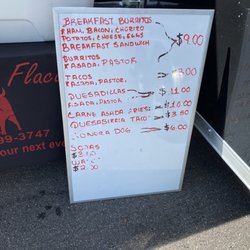 Flaco
99-3747
our next eve
BREAKFAST BURRITOS
HAM, BACON, CHORIZO
POTATOS, CHEESE, EGGS
BREAKFAST SANDWICH
$9.00
BURRITOS
ASADA, PASTOR
TACOS
ASADA, PASTOR.
QUESADILLAS $11.00
ASADA, PASTOR
CARNE ASADA FRIES $10.00
QUESABIRRIA TACO $3.50
SONORA DOG $6.00
SODAS
$2.00